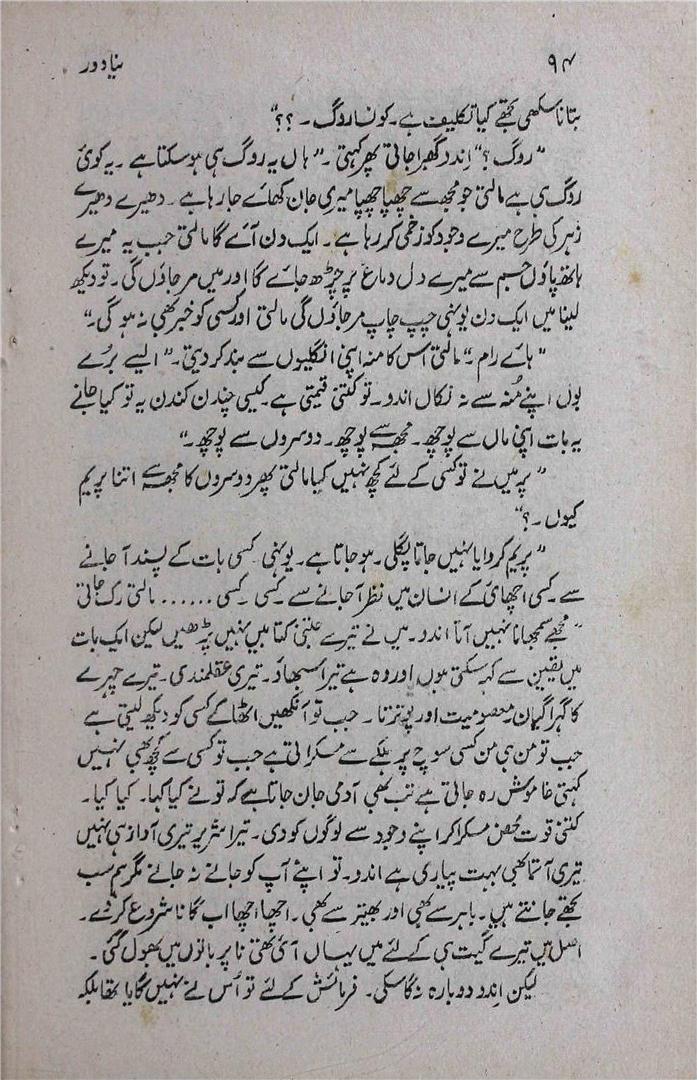 ۹۴ نیا دور
بتا نا سکھی تجھے کیا تکلیف ہے۔ کونسا روگ۔ ؟؟"
"روگ؟" اندد گھبرا جاتی پھر کہتی۔ "ہاں یہ روگ ہی ہو سکتا ہے۔ یہ کوئی
روگ ہی ہے مالتی جو مجھ سے چھپا چھپا میری جان کھائے جا رہا ہے۔ دھیرے دھیرے
زہر کی طرح میرے وجود کو زخمی کر رہا ہے۔ ایک دن آئے گا مالتی جب یہ میرے
ہاتھ پاؤں جسم سے میرے دل دماغ پر چڑھ جائے گا اور میں مر جاؤں گی۔ تو دیکھ
لینا میں ایک دن یونہی چپ چاپ مر جاؤں گی مالتی اور کسی کو خبر بھی نہ ہو گی۔"
"ہائے رام۔" مالتی اس کا منہ اپنی انگلیوں سے بند کر دیتی۔ "ایسے برے
بول اپنے منہ سے نہ نکال اندو۔ تو کتنی قیمتی ہے۔ کیسی چندن کندن یہ تو کیا جانے
یہ بات اپنی ماں سے پوچھ۔ مجھ سے پوچھ۔ دوسروں سے پوچھ۔"
"پر میں نے تو کسی کے لئے کچھ نہیں کیا مالتی پھر دوسروں کا مجھ سے اتنا پریم
کیوں۔ ؟"
"پریم کروایا نہیں جاتا پگلی۔ ہو جاتا ہے۔ یونہی کسی بات کے پسند آ جانے
سے۔ کسی اچھائی کے انسان میں نظر آ جانے سے۔ کسی۔ کسی...... مالتی رک جاتی
"مجھے سمجھانا نہیں آتا اندو۔ میں نے تیرے جتنی کتابیں نہیں پڑھیں لیکن ایک بات
میں یقین سے کہہ سکتی ہوں اور وہ ہے تیرا سبھاؤ۔ تیری عقلمندی۔ تیرے چہرے
کا گہرا گیان۔ معصومیت اور پوترتا۔ جب تو آنکھیں اٹھا کے کسی کو دیکھ لیتی ہے
جب تو من ہی من کسی سوچ پر ہلکے سے مسکراتی ہے جب تو کسی سے کچھ بھی نہیں
کہتی خاموش رہ جاتی ہے تب بھی آدمی جان جاتا ہے کہ تو نے کیا کہا۔ کیا کیا۔
کتنی قوت محض مسکرا کر اپنے وجود سے لوگوں کو دی۔ تیرا شریر تیری آواز ہی نہیں
تیری آتما بھی بہت پیاری ہے اندو۔ تو اپنے آپ کو جانے نہ جانے مگر ہم سب
تجھے جانتے ہیں۔ باہر سے بھی اور بھیتر سے بھی۔ اچھا اچھا اب گانا شروع کر دے۔
اصل میں تیرے گیت ہی کے لئے میں یہاں آئی تھی نا پر باتوں میں بھول گئی۔
لیکن اندد دوبارہ نہ گا سکی۔ فرمائش کے لئے تو اُس نے نہیں گایا تھا بلکہ